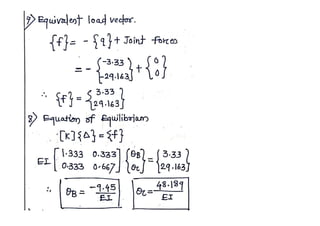 7) Equivalent load vector.
{f} = - {q} + Joint forces
= - {-3.33 -29.163} + {0 0}
∴ {f} = {3.33 29.163}
8) Equation of Equilibrium
[K]{Δ} = {f}
EI [1.333 0.333 0.333 0.667] {θB θC} = {3.33 29.163}
∴ θB = -9.45/EI θC = 48.189/EI